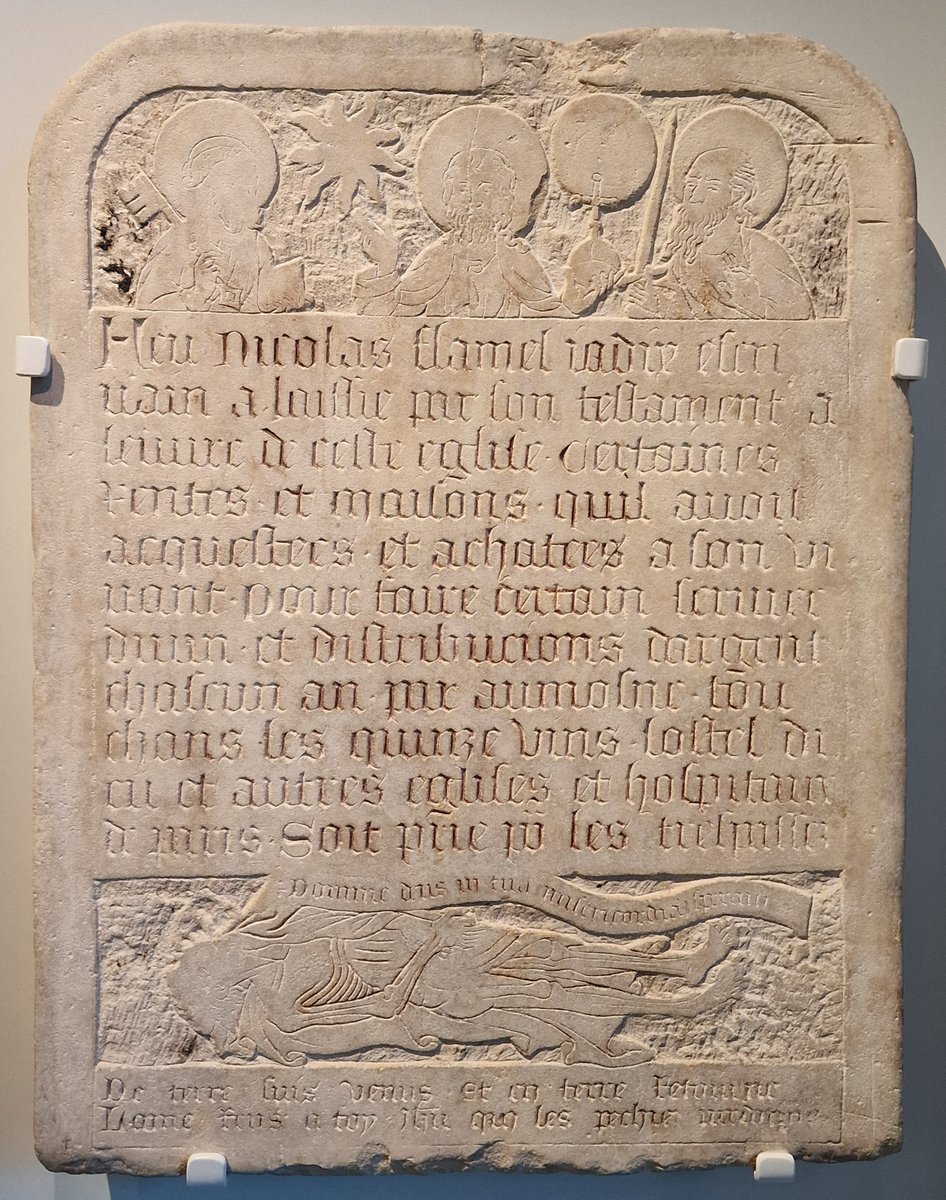 Feu Nicolas flamel iadis escri
uain a laissie par son testament a
leuure de ceste eglise · Certaines
Rentes · et maisons · quil auoit
acquestees · et achatees a son vi
uant · pour faire certain seruice
diuin · et distribucions dargent
chascun an · par aumosne · tou
chans les quinze vins · lostel di
eu et autres eglises · et hospitaux
de paris · Soit prie po les trespasses
Domine deus in tua misericordia speraui
De terre suis venus et en terre Retourne
Lame rens a toy ihu qui les pechies pardonne